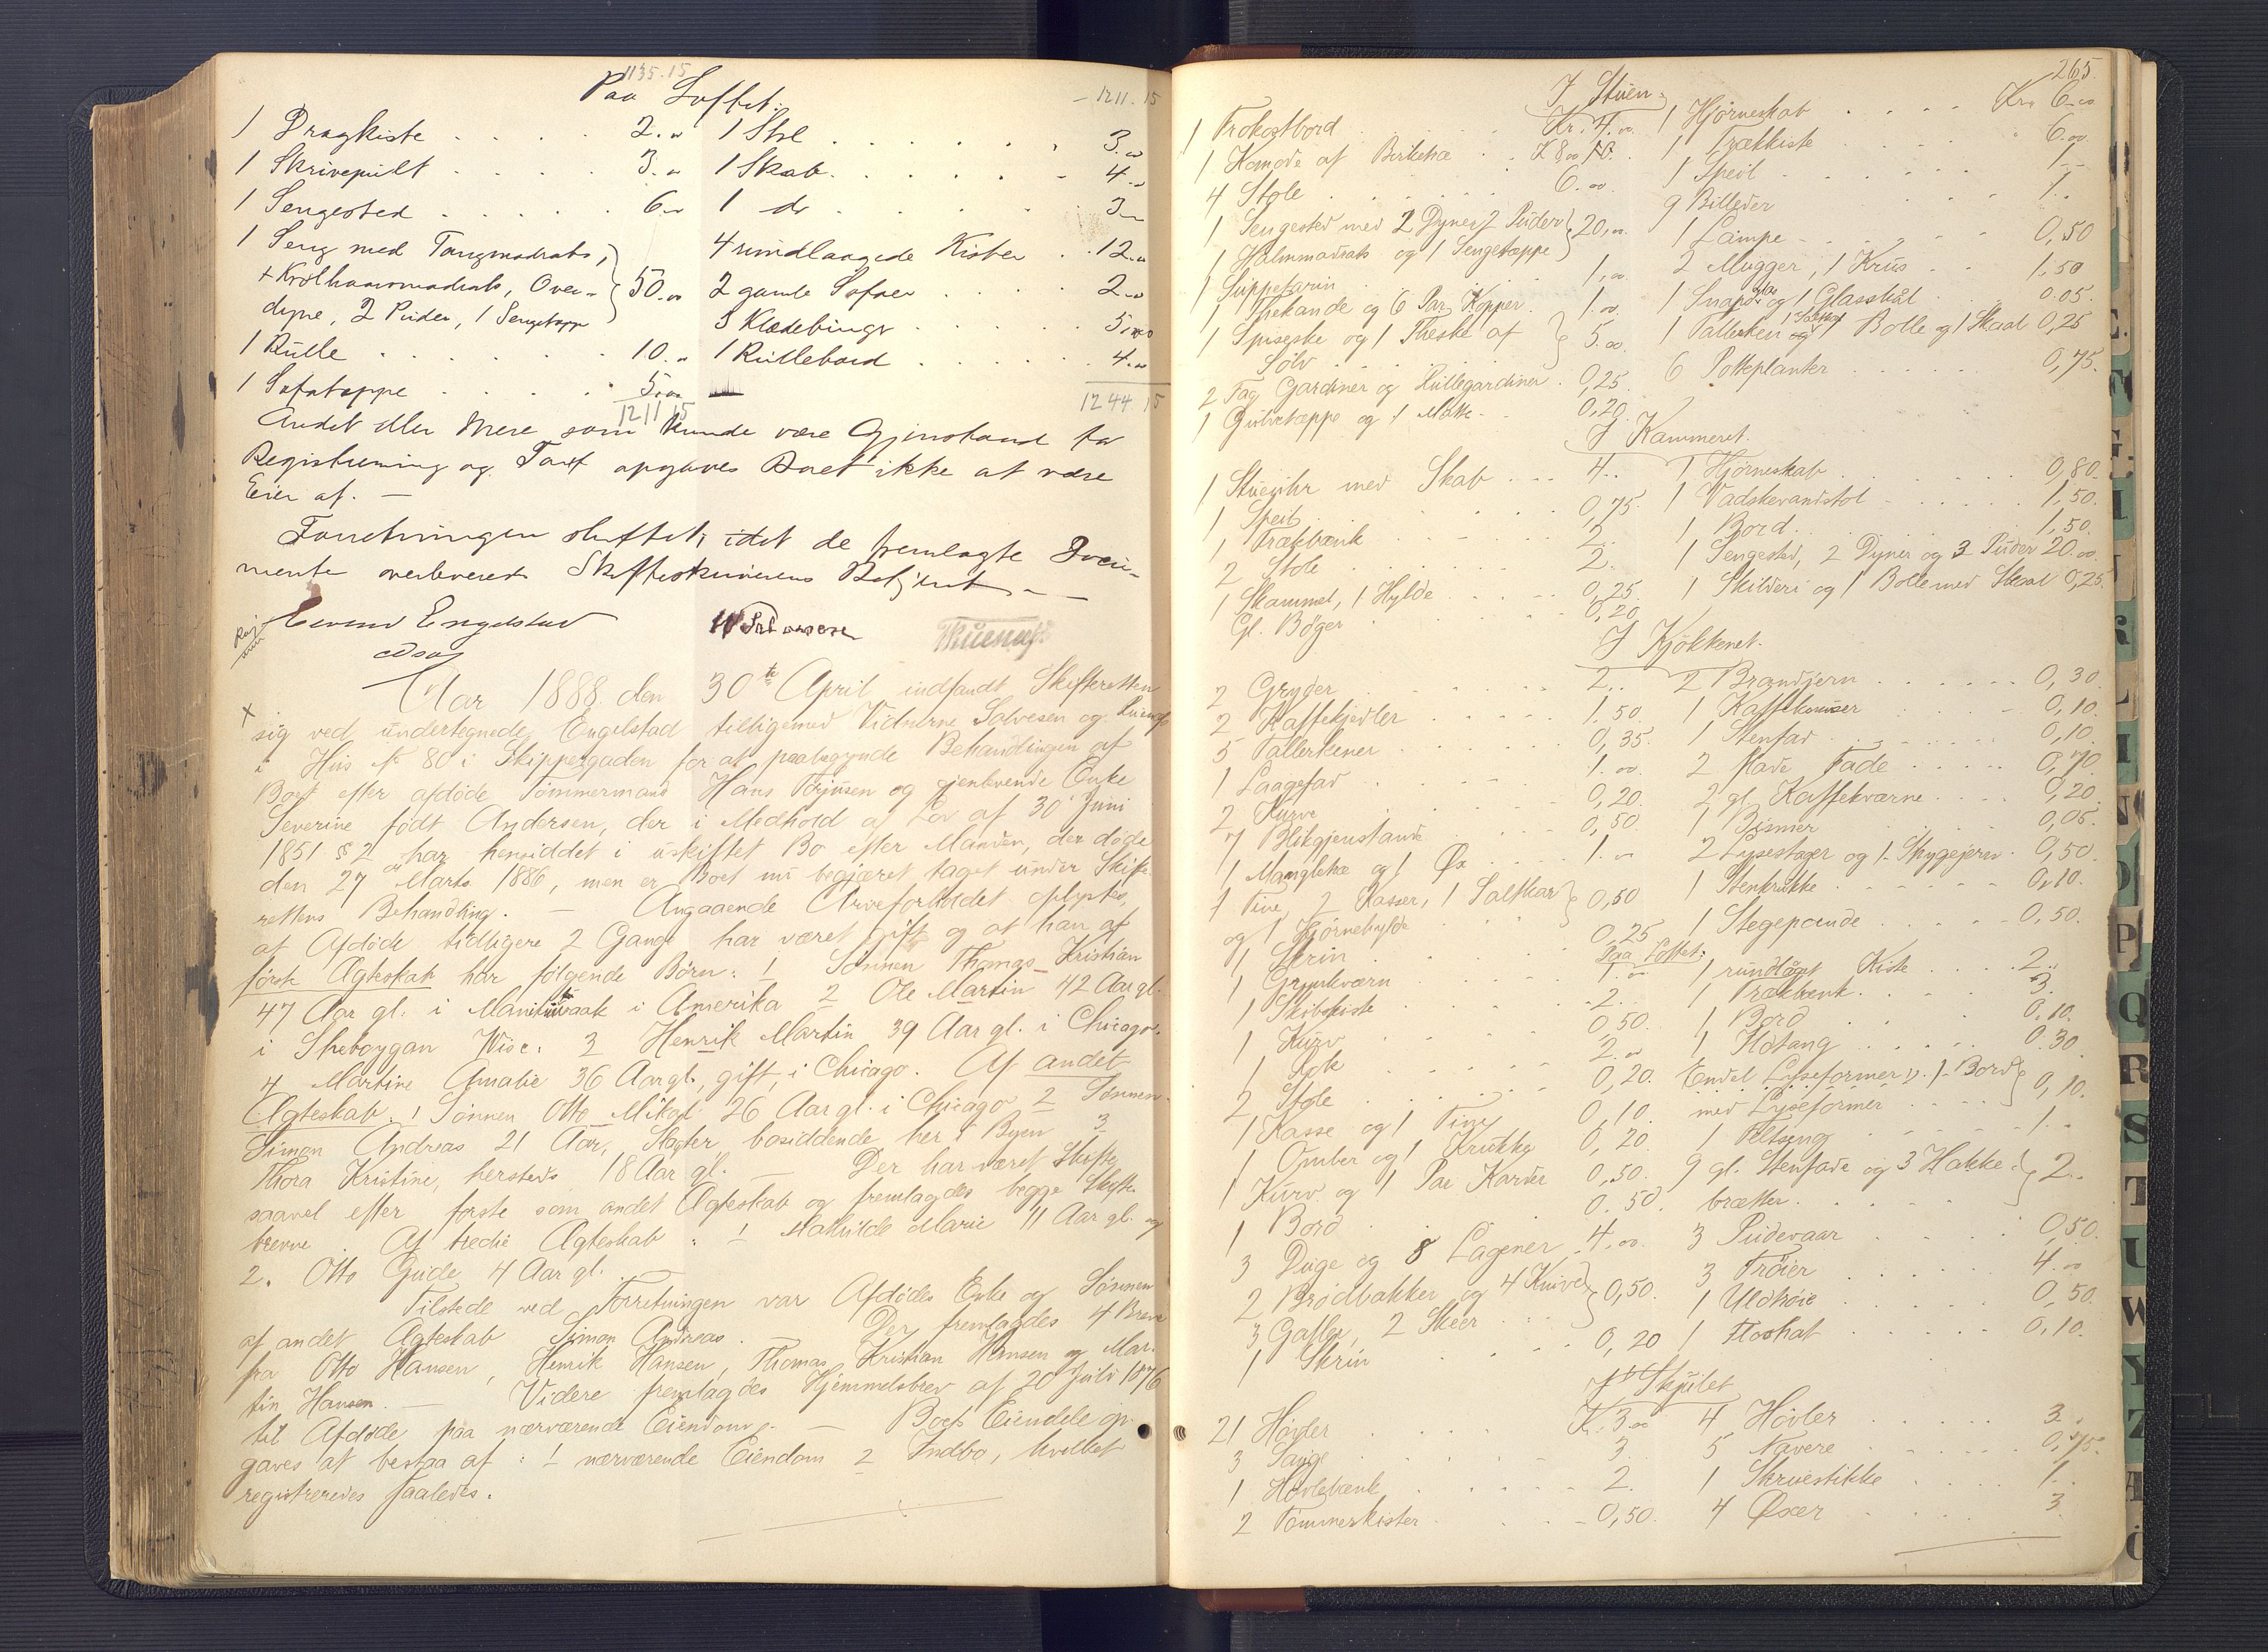 1135.15
Paa Loftet:
- 1211.15
1 Dragkiste . . . . 2.00 1 Stol . . . . . . 3.00
1 Skrivepult . . . . 3.00 1 Skab . . . . . . 4.00
1 Sengested . . . . . 6.00 1 do . . . . . . 3.00
1 Seng med Tangmadrats, 4 rundlaagede Kister . . 12.00
+ Krølhaarsmadrats, Over- 50.00 2 gamle Sofaer . . . . 2.00
dyne, 2 Puder, 1 Sengetæppe 3 Klædebinger . . . . 5,00
1 Rulle . . . . . . 10.00 1 Rullebord . . . . 4.00
1 Sofatæppe . . . . 5,00
1211 15 1244.15
Andet eller mere som kunde være Gjenstand for
Registrering og Taxt opgaves Boet ikke at være
Eier af. —
Forretningen sluttet, idet de fremlagte Docu-
menter overleveredes Skifteskriverens Betjent. —
Eivind Engelstad
Salvesen
Aar 1888 den 30te April indfandt Skifteretten
sig ved undertegnede Engelstad tilligemed Vidnerne Salvesen og
i Hus № 80 i Skippergaden for at paabegynde Behandlingen af
Boet efter afdøde Tømmermand Hans Terjusen og gjenlevende Enke
Severine født Andersen, der i Medhold af Lov af 30 Juni
1851 § 2 har hensiddet i uskiftet Bo efter Manden, der døde
den 27 Marts 1886, men er Boet nu begjæret taget under Skifte-
rettens Behandling. — Angaaende Arveforholdet oplystes,
at Afdøde tidligere 2 Gange har været gift og at han af
første Ægteskab har følgende Børn: 1 Sønnen Thomas Kristian
47 Aar gl. i i Amerika 2 Ole Martin 42 Aar gl.
i Sheboygan Wisc. 3 Henrik Martin 39 Aar gl. i Chicago.
4 Martine Amalie 36 Aar gl., gift, i Chicago. Af andet
Ægteskab: 1 Sønnen Otto Mikal 26 Aar gl. i Chicago 2 Sønnen
Simon Andreas 21 Aar, Slagter bosiddende her i Byen 3
Thora Kristine, hersteds 18 Aar gl. — Der har været Skifte
saavel efter første som andet Ægteskab og fremlagdes begge Skifte-
brevne. Af tredie Ægteskab: 1 Mathilde Marie 11 Aar gl. og
2. Otto Gude 4 Aar gl.
Tilstede ved Forretningen var Afdødes Enke og Sønnen
af andet Ægteskab Simon Andreas. Der fremlagdes 4 Breve
fra Otto Hansen, Henrik Hansen, Thomas Kristian Hansen og Mar-
tin Hansen. — Videre fremlagdes Hjemmelsbrev af 20 Juli 1876
til Afdøde paa nærværende Eiendom. — Boets Eiendele op-
gaves at bestaa af: 1 nærværende Eiendom 2 Indbo, hvilket
registreredes saaledes.
265.
I Stuen:
1 Frokostbord . . . . Kr. 4.00 1 Hjørneskab . . . . Kr. 6.00
1 Komode af Birketræ . . 1 Trækkiste . . . . 6.00
4 Stole . . . . . 6.00 1 Speil . . . . 1.-
1 Sengested med 2 Dyner 2 Puder 20,00 9 Billeder . . . 1..
1 Halmmadrats og 1 Sengetæppe 1 Lampe . . . . 0,50
1 Suppeterin . . . . 1,00 2 Mugger, 1 Krus . . 1.50
1 Thekande og 6 Par Kopper . 1.00 1 Snapseglas og 1 Glasskål . 0.05.
1 Spiseske og 1 Theske af 5.00 1 Tallerken Bolle og 1 Skaal 0,25
Sølv 6 Potteplanter . . . . 0,75.
2 Fag Gardiner og Rullegardiner . 0,25.
1 Gulvtæppe og 1 Matte . . 0,20.
I Kammeret.
1 Stueuhr med Skab . . . 4.. 1 Hjørneskab . . . . 0,80.
1 Speil . . . . . 0,75. 1 Vadskevandstol . . . 1,50.
1 Trækbænk . . . . 2. 1 Bord . . . . . 1,50.
2 Stole . . . . . 2. 1 Sengested, 2 Dyner og 3 Puder 20.00
1 Skammel, 1 Hylde . . . 0,25. 1 Skilderi og 1 Bolle med Skaal 0,25.
Gl. Bøger . . . . 0,20
I Kjøkkenet.
2 Gryder . . . . . 2.. 2 Brandjern . . . . . 0,30
2 Kaffekjedler . . . . 1.50. 1 . . . . 0,10.
5 Tallerkener . . . . 0,35. 1 Stenfad . . . . . 0,10.
1 Laagefad . . . . 1.00 2 Made Fade . . . . . 0,70
2 Kurve . . . . . 0,20. 2 gl. Kaffekværne . . . 0,20
7 Blikgjenstande . . . 0,50. 1 Bismer . . . . . 0,05.
1 Mangletræ og 1 Øx . . . 1.00 2 Lysestager og 1 Strygejern . 0,50.
1 Tine 2 Kasser, 1 Saltkar 0,50 1 Stenkrukke . . . . 0,10.
og 1 Hjørnehylde 1 Stegepande . . . . 0,50.
1 Skrin . . . . . 0,25
Paa Loftet:
1 Grynkværn . . . . 1.00 1 rundlåget Kiste . . . . 2..
1 Skibskiste . . . . 2. 1 Trækbænk . . . . 3.
1 Kurv . . . . . 0,50. 1 Bord . . . . 0,10.
1 Rok . . . . . 2.00 1 Ildtang . . . . 0.30
2 Stole . . . . . 0,20. Endel Lyseformer 1 Bord 0,10.
1 Kasse og 1 Tine 0,10. med Lyseformer
1 Ømber og 1 Krukke 0,20 1 Feltseng . . . . 1..
1 Kurv og 1 Par Karder 0,50. 9 gl. Stenfade og 3 Hakke- 2..
1 Bord . . . . . 0.50. brætter . . . .
3 Duge og 8 Lagener . 4.00 3 Pudevaar . . . . 0,50.
2 Brødbakker og 4 Knive 0,50. 3 Trøier . . . . 4.00
3 Gafler, 2 Skeer . . . 1 Uldtrøie . . . . 0,50.
1 Skrin . . . . . 0,20 1 Floshat . . . . 0,10.
I Skjulet
21 Høvler . . . . Kr. 3.00 4 Høvler . . . . 3..
3 Sauge . . . . 3. 5 Navere . . . . 0,75.
1 Høvlebænk . . . . 2. 1 Skruestikke . . . . 1..
2 Tømmerkister . . . . 0,50. 4 Øxer . . . . 3.